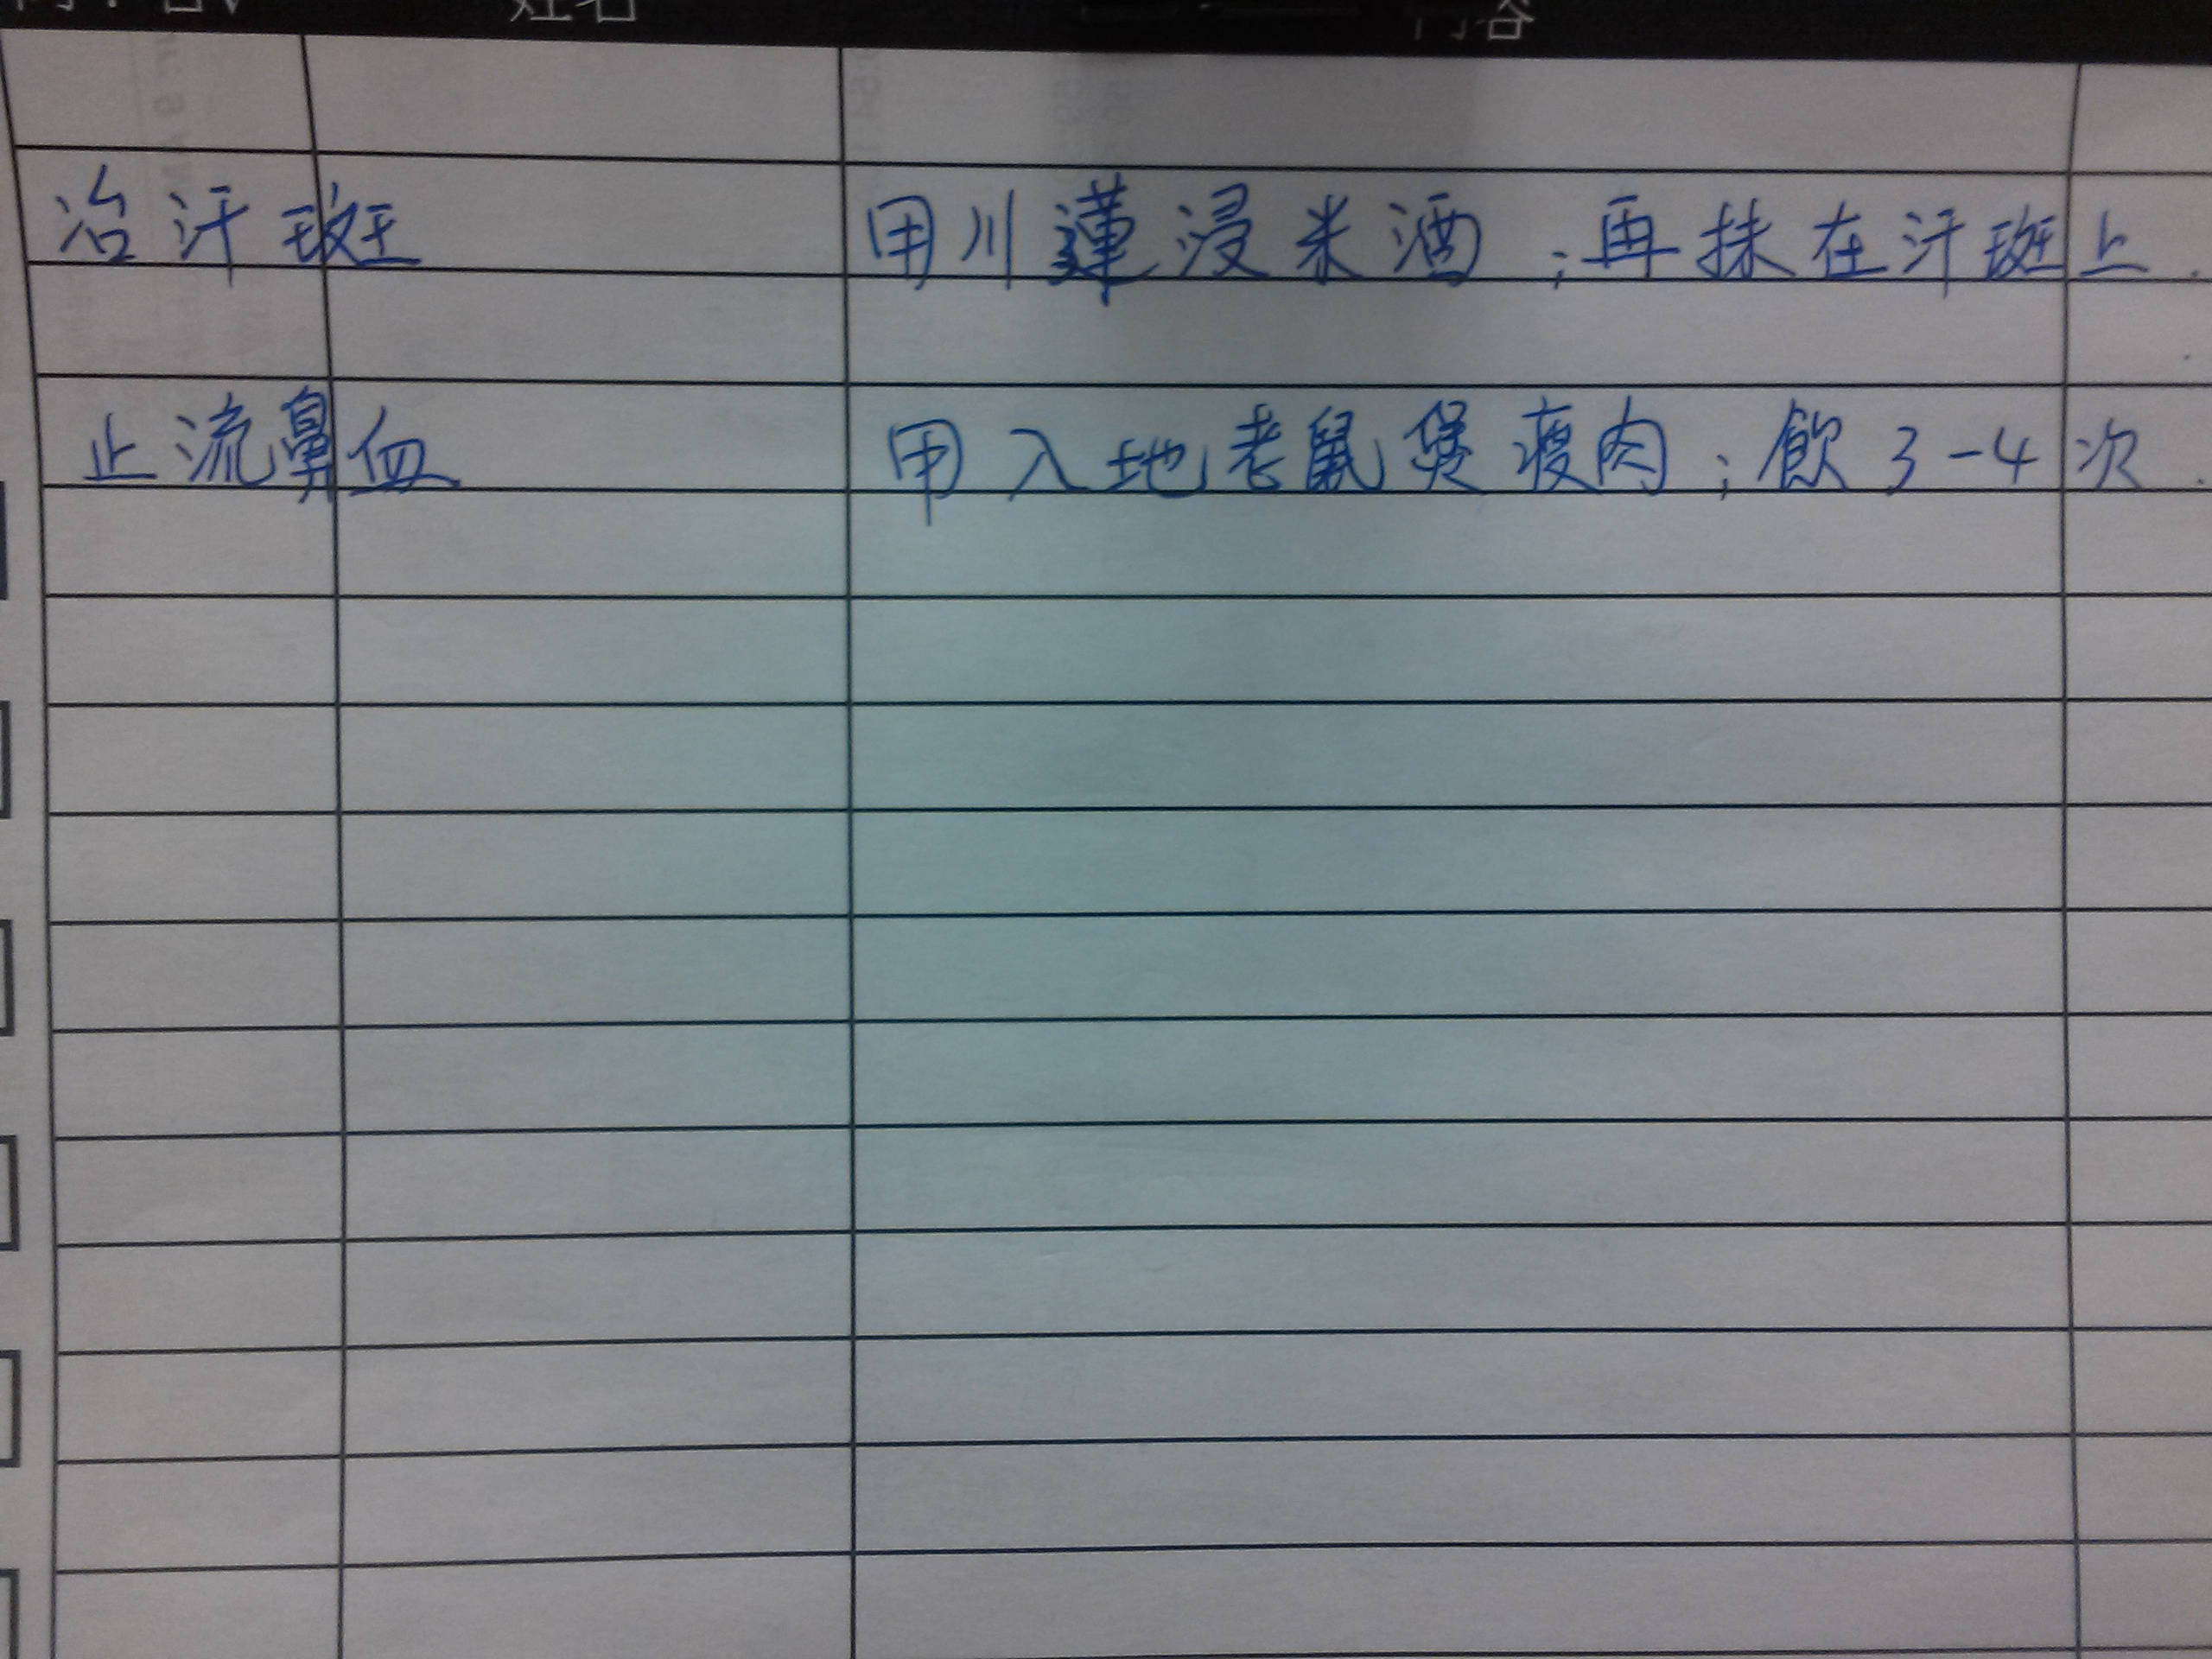 姓名 內容
治汗斑 用川蓮浸米酒;再抹在汗斑上.
止流鼻血 用入地老鼠煲瘦肉;飲3-4次.